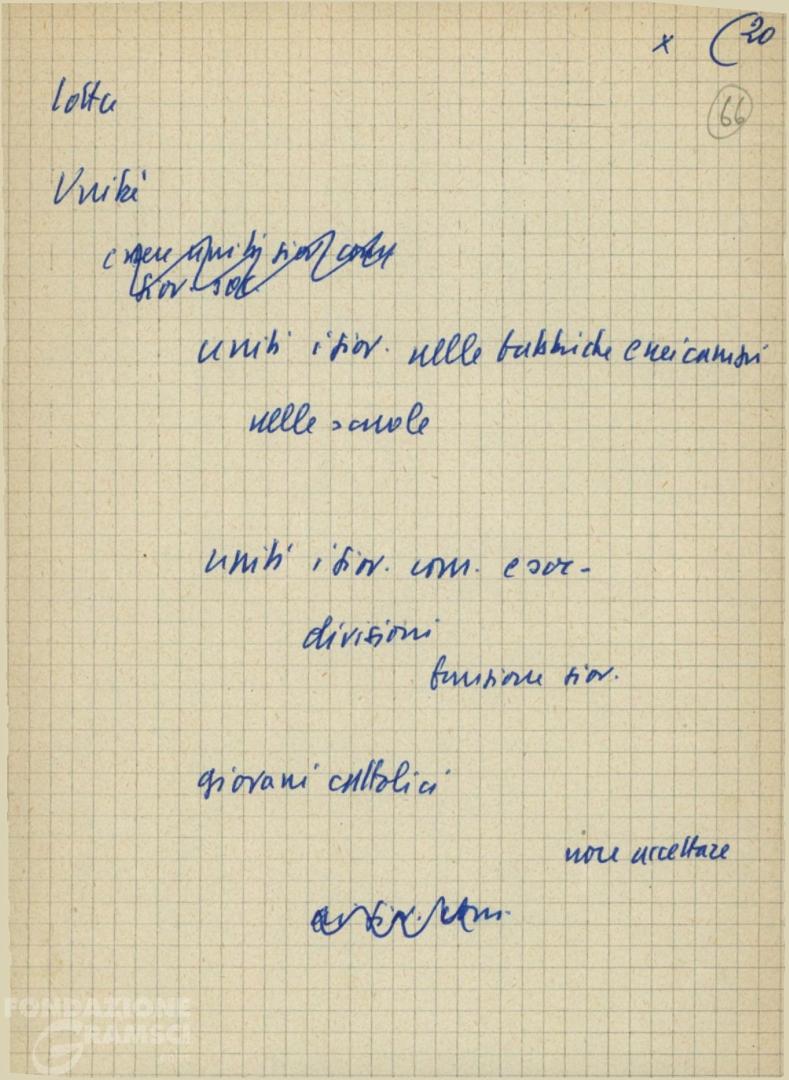 x (20
66
lotta
Unità
unità i giov. nelle fabbriche e nei campi
nelle scuole
unità i giov. com. e soc-
divisioni
funzione giov.
giovani cattolici
non accettare
FONDAZIONE
GRAMSCI